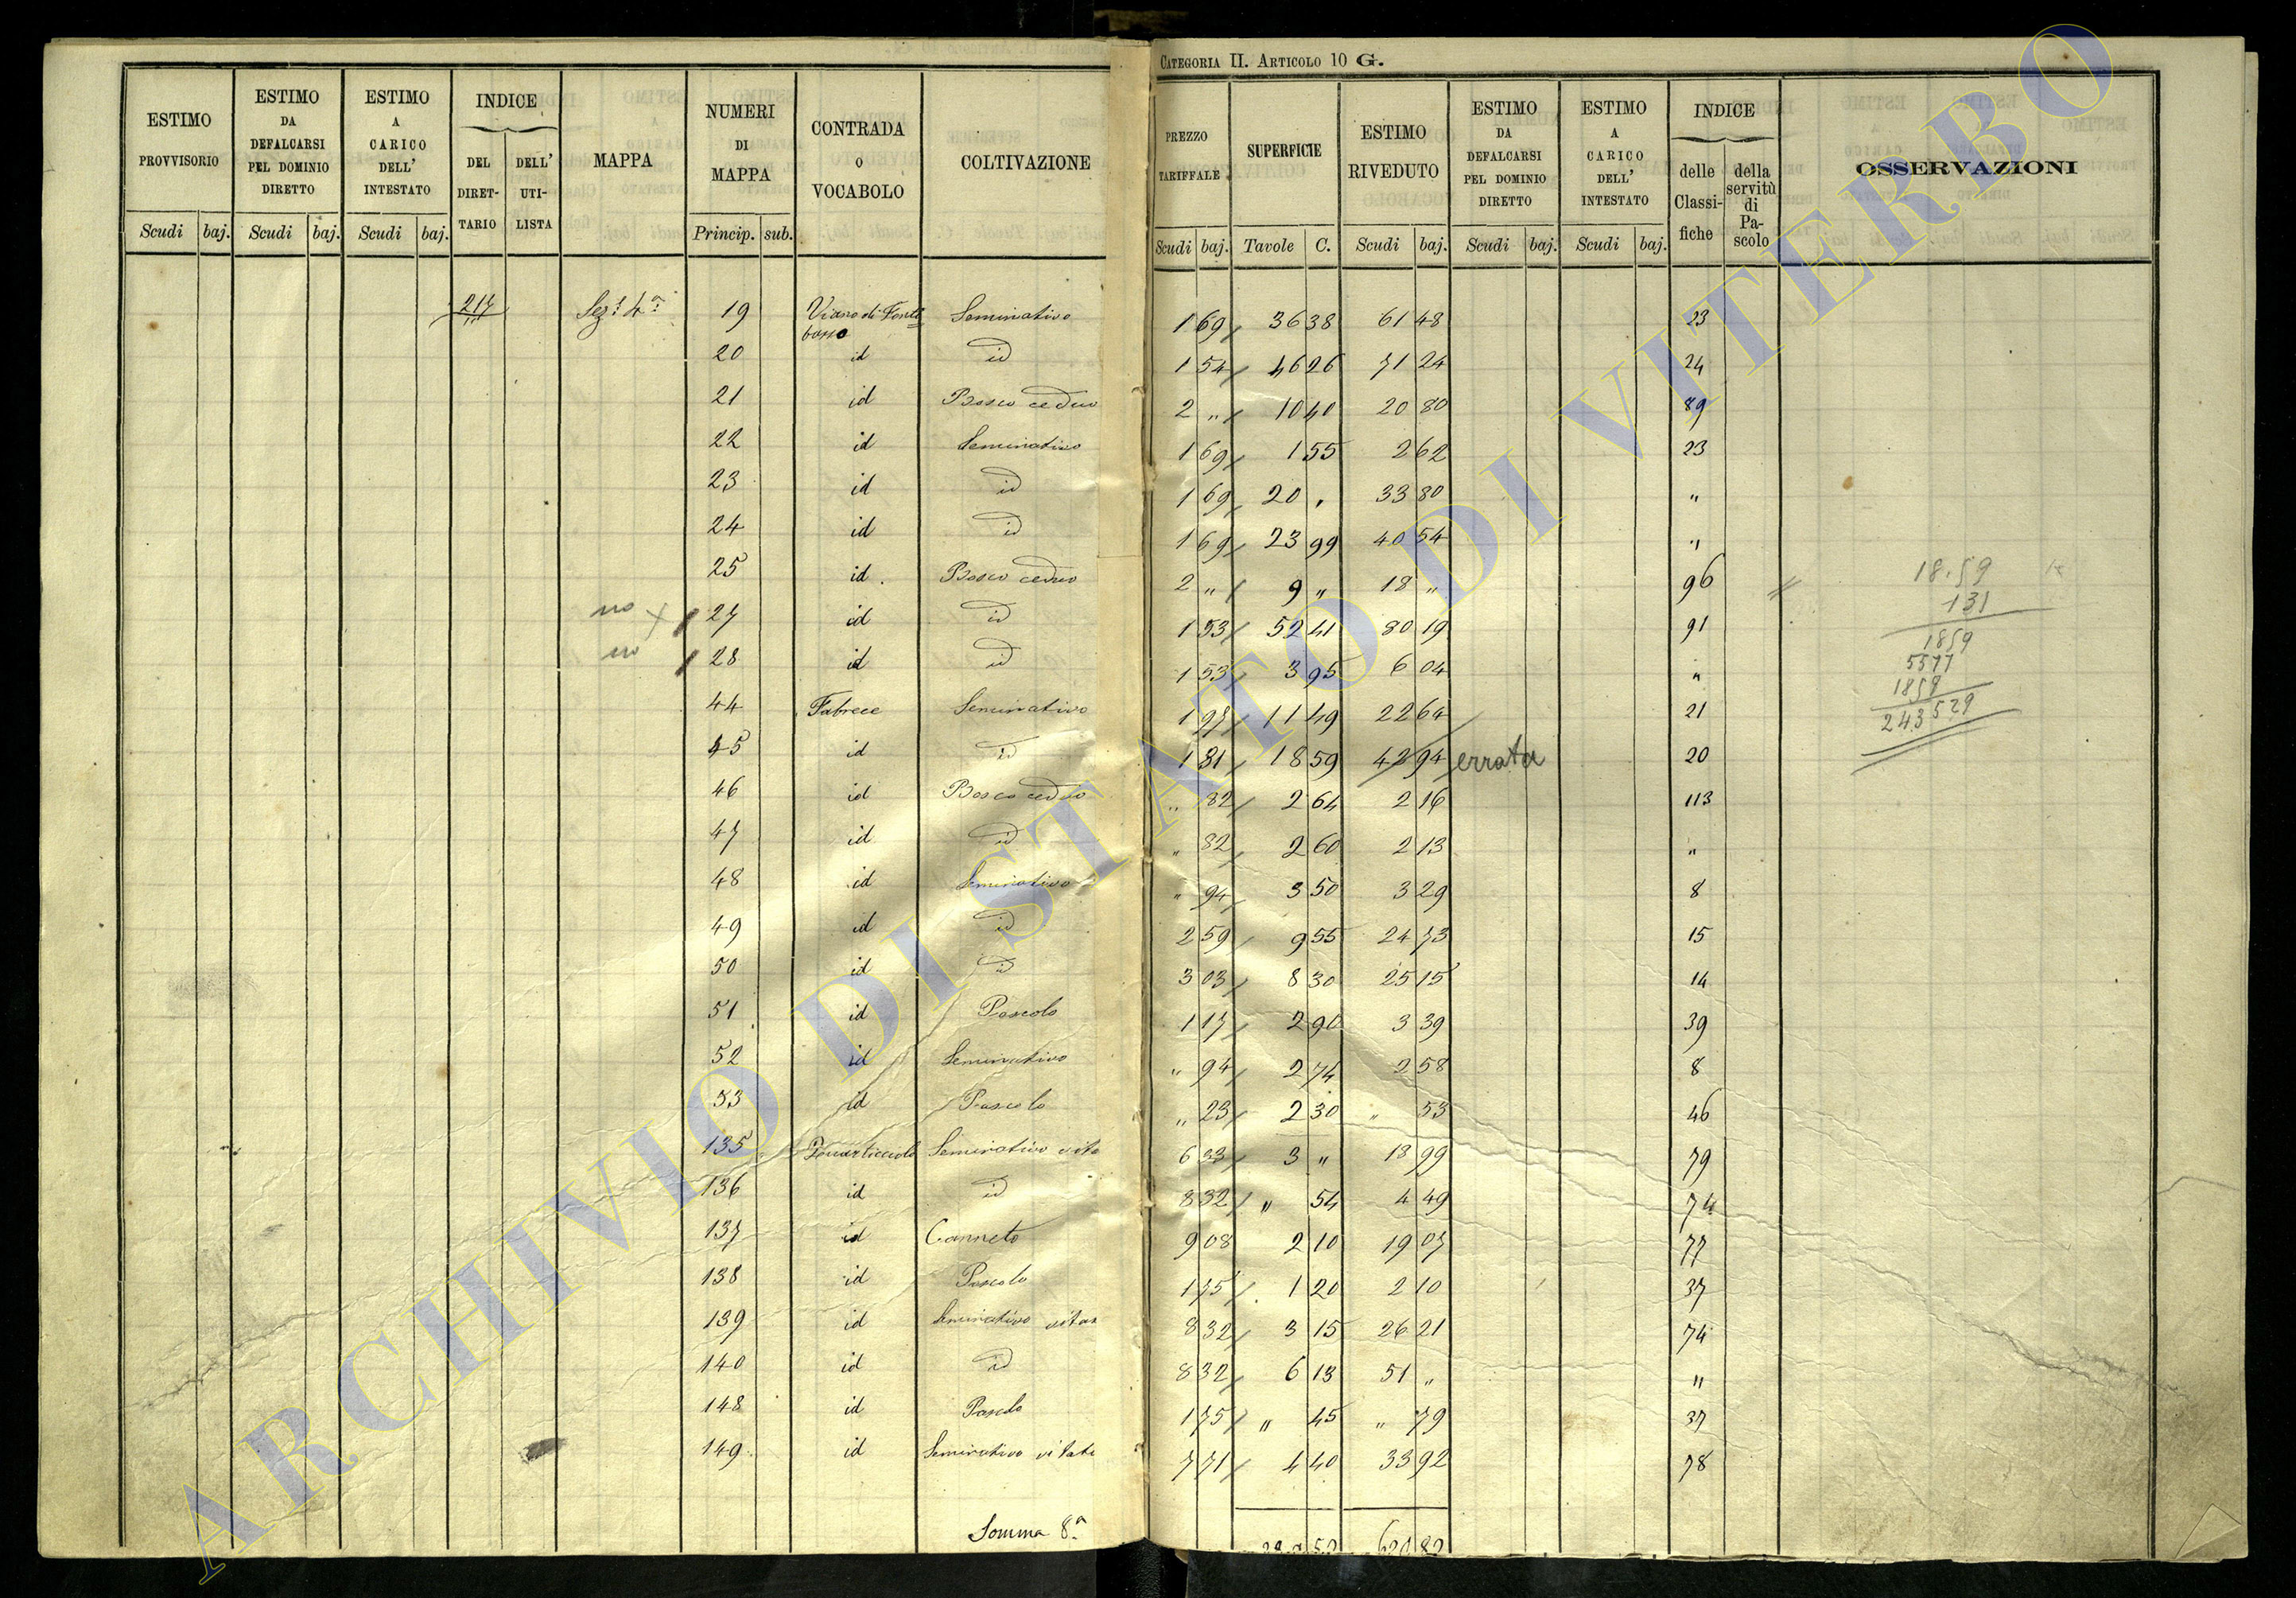 CATEGORIA II. ARTICOLO 10 G.
ESTIMO PROVVISORIO
ESTIMO DA DEFALCARSI PEL DOMINIO DIRETTO
ESTIMO A CARICO DELL' INTESTATO
INDICE
DEL DIRET-TARIO
DELL' UTI-LISTA
MAPPA
NUMERI DI MAPPA
CONTRADA O VOCABOLO
COLTIVAZIONE
PREZZO TARIFFALE
SUPERFICIE
ESTIMO RIVEDUTO
ESTIMO DA DEFALCARSI PEL DOMINIO DIRETTO
ESTIMO A CARICO DELL' INTESTATO
INDICE
delle Classi-fiche
della servitù di Pa-scolo
OSSERVAZIONI
Scudi baj. Scudi baj. Scudi baj. Princip. sub. Scudi baj. Tavole C. Scudi baj. Scudi baj. Scudi baj.
217 Sez: 4a 19 Seminativo 1 69 36 38 61 48 23
20 id id 1 54 46 26 71 24 24
21 id Bosco ceduo 2 " 10 40 20 80 89
22 id Seminativo 1 69 1 55 2 62 23
23 id id 1 69 20 " 33 80 "
24 id id 1 69 23 99 40 54 "
25 id Bosco ceduo 2 " 9 " 18 " 96
no 27 id id 1 53 52 41 80 19 91
no 28 id id 1 53 3 95 6 04 "
44 Fabrece Seminativo 1 97 11 49 22 64 21
45 id id 1 81 18 59 42 94 errata 20
46 id Bosco ceduo " 82 2 64 2 16 113
47 id id " 82 2 60 2 13 "
48 id Seminativo " 94 3 50 3 29 8
49 id id 2 59 9 55 24 73 15
50 id id 3 03 8 30 25 15 14
51 id Pascolo 1 17 2 90 3 39 39
52 id Seminativo " 94 2 74 2 58 8
53 id Pascolo " 23 2 30 " 53 46
135 Seminativo vita 6 33 3 " 18 99 79
136 id id 8 32 " 54 4 49 74
137 id Canneto 9 08 2 10 19 07 77
138 id Pascolo 1 75 1 20 2 10 37
139 id Seminativo vitat 8 32 3 15 26 21 74
140 id id 8 32 6 13 51 " "
148 id Pascolo 1 75 " 45 " 79 37
149 id Seminativo vitato 7 71 4 40 33 92 78
Somma 8a
18.59
131
1859
5577
1859
243529
ARCHIVIO DI STATO DI VITERBO